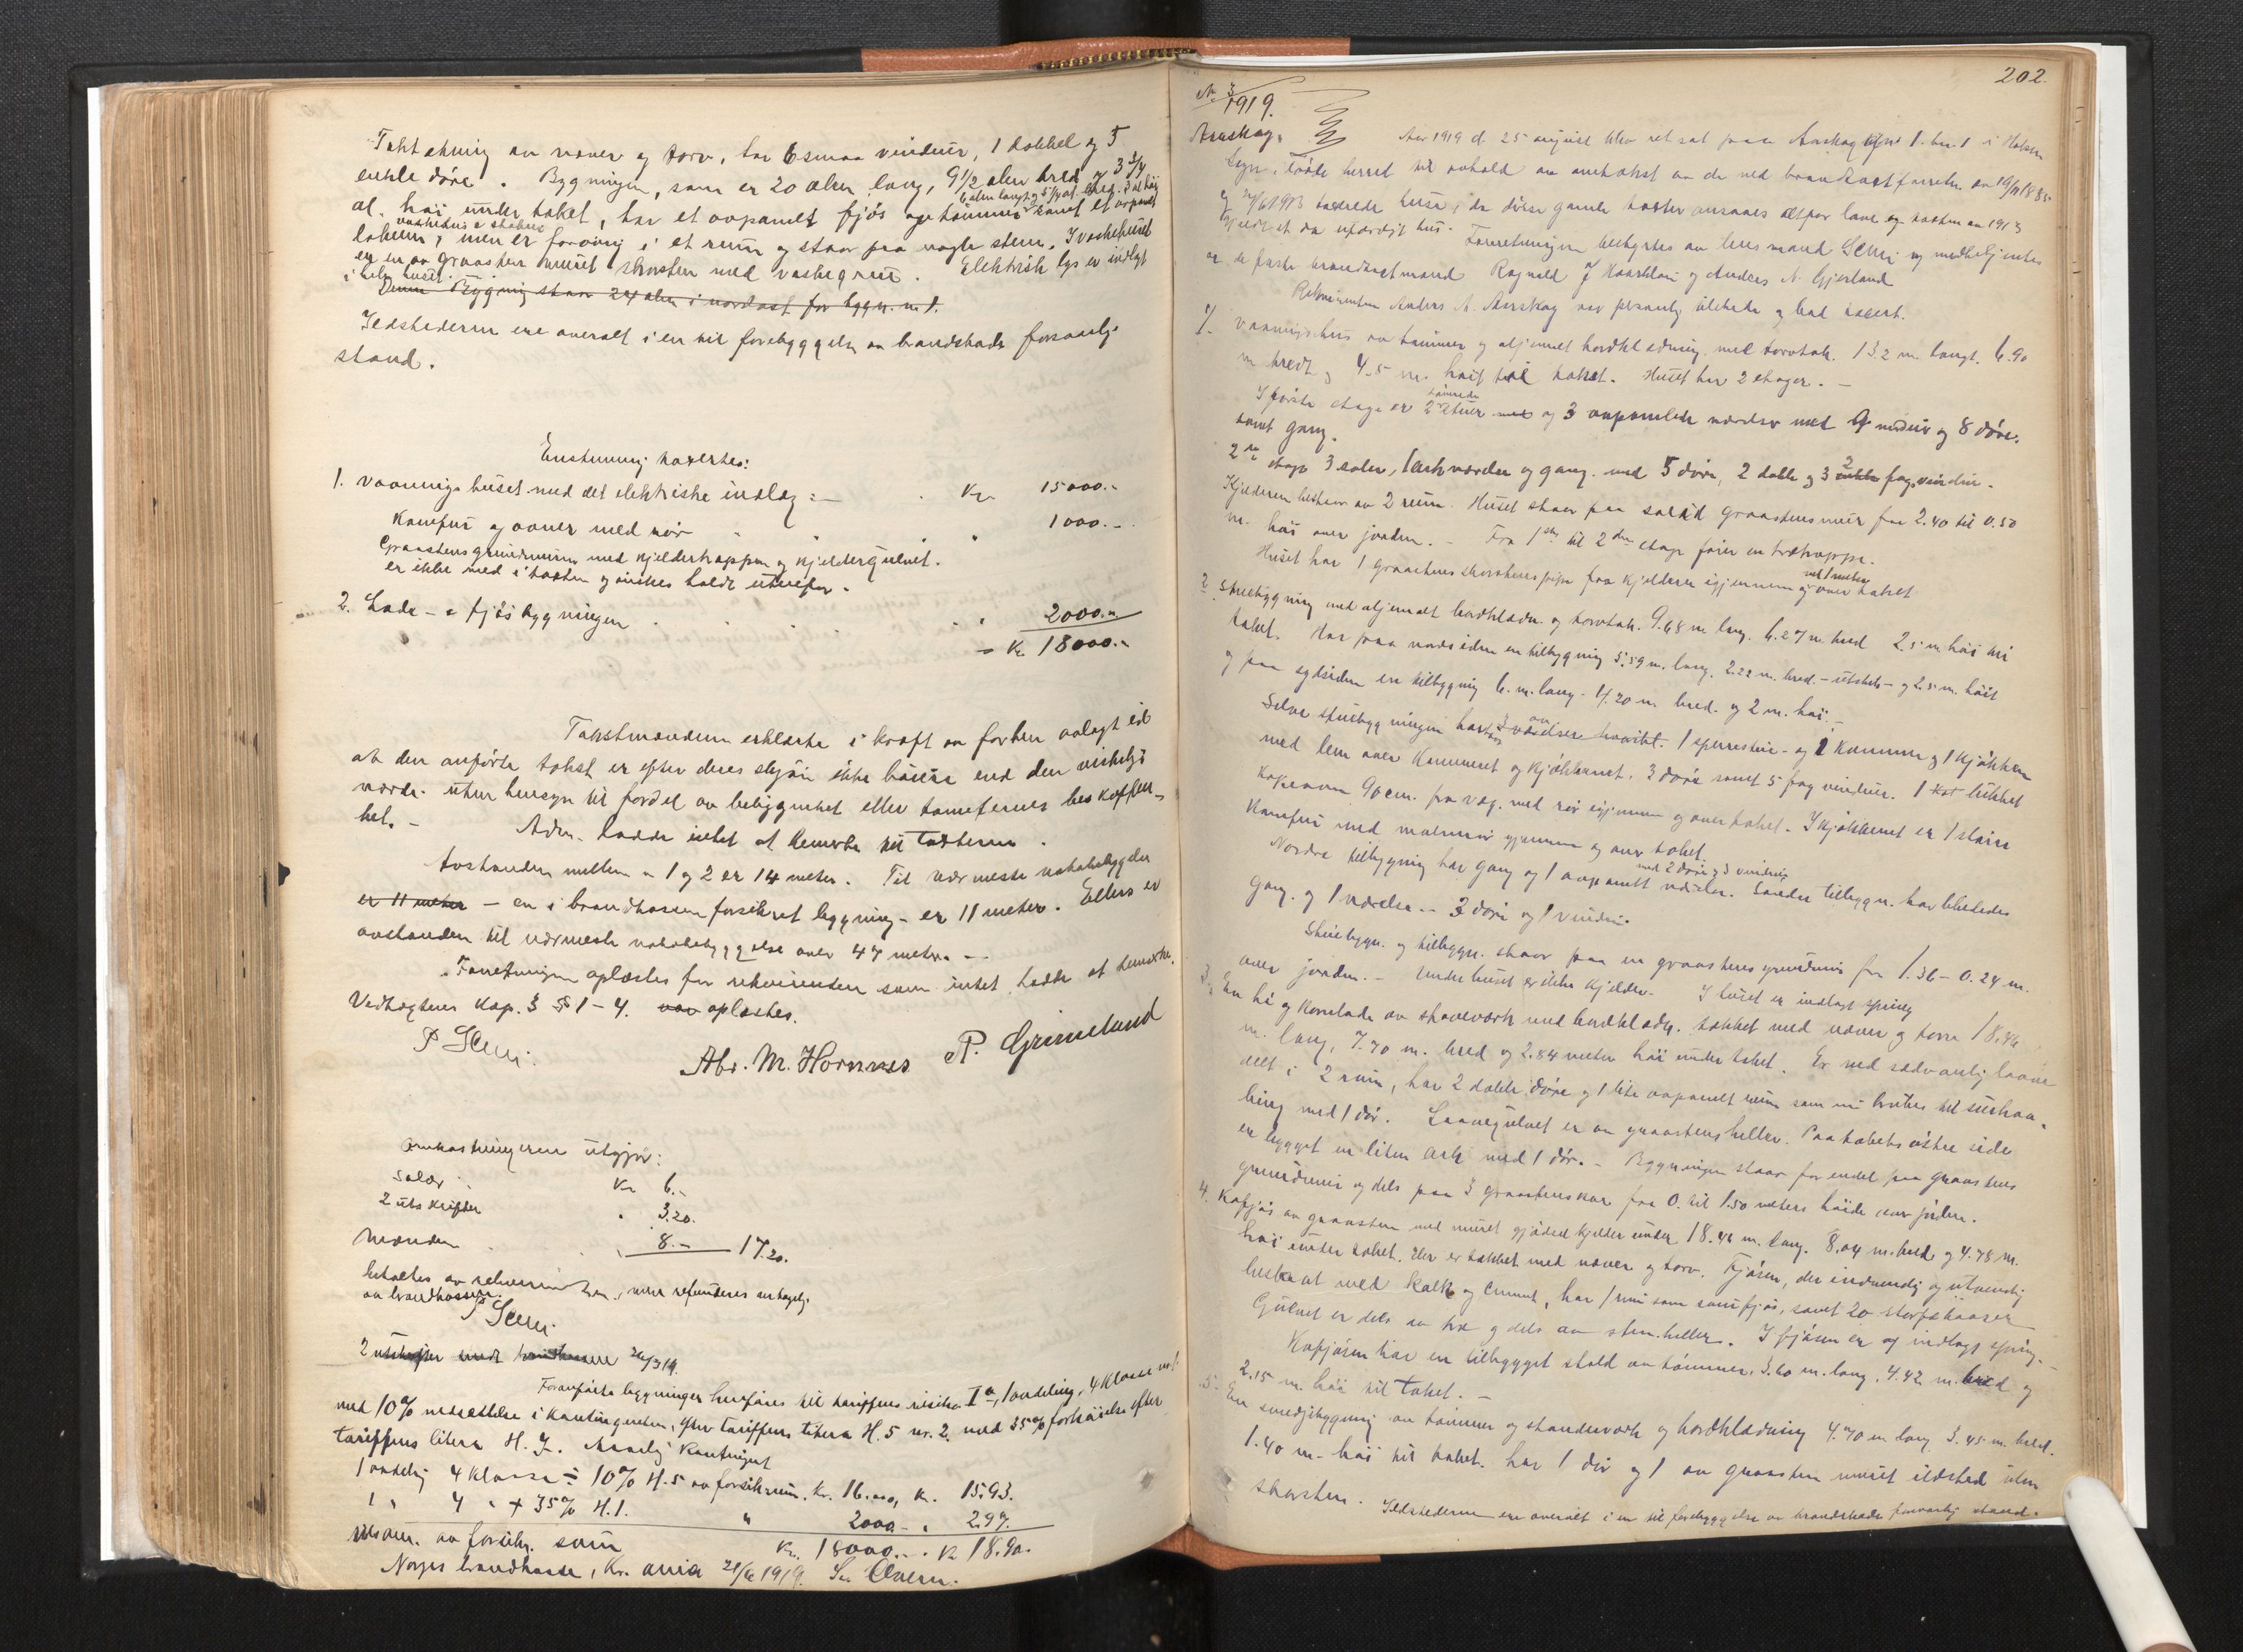 Taktækning av næver og torv, har 6 smaa vinduer, 1 dobbel og 5
enkle døre. Bygningen, som er 20 alen lang, 9 1/2 alen bred og 3 3/4
al. høi under taket, har et avpanelt fjøs
lokum, men er forøvrig i et rum og staar paa nogle stene. I vaskehuset
er en av graasten muret skorsten med vaskegrue. Elektrisk lys er indlagt
i hele huset.
Denne Bygning staar 24 alen i nordost for bygn. nr 1.
Ildstederne ere overalt i en til forebyggelse av brandskade forsvarlig
stand.
Enstemmig taxertes:
1. Vaaningshuset med det elektriske indlæg: Kr. 15000.-
Komfur og ovner med rør 1000.-
Graastensgrundmuren med kjeldertrappen og kjeldergulvet.
er ikke med i taxten og ønskes holdt utenfor.
2. Lade- & fjøsbygningen 2000.-
= Kr. 18000.-
Takstmændene erklærte i kraft av forhen avlagt ed
at den anførte takst er efter deres skjøn ikke høiere end den virkelige
værdi uten hensyn til fordel av beliggenhet eller tomternes beskaffen-
het. - Adm. hadde intet at bemerke til taxterne.
Avstanden mellem 1 og 2 er 14 meter. Til nærmeste nabobebyggelse
er 11 meter - en i brandkassen forsikret bygning - er 11 meter. Ellers er
avstanden til nærmeste nabobebyggelse over 47 meter. -
Forretningen oplæstes for rekvirenten som intet hadde at bemerke.
Vedtægtenes Kap. 3 § 1-4. var oplæstes.
Abr. M. Hornnes P. Grimeland
Omkostningerne utgjør:
Salær Kr 6.-
2 utskrifter 3.20.
Mænden 8.- 17.20.
betales av rekvirenten, men refunderes
av brandkassen.
2 utskrifter sendt brandkassen 26/3 19.
Foranførte bygninger henføres til tariffens risiko I a, 1 avdeling, 4 klasse nr. 1
med 10% nedsættelse i kontingenten, efter tariffens litera H. 5 nr. 2. med 35% forhøielse efter
tariffens litera H. I. Aarlig Kontingent
1 avdeling 4 klasse ÷ 10% H. 5 av forsikr.sum. Kr. 16.000, Kr. 15.93.
1 " 4 " + 35% H. 1. " 2000.- " 2.97.
Kr. 18000.- Kr 18.90.
Norges brandkasse, Kr.ania 21/6 1919.
202.
№ 3/1919.
Aarskog.
Aar 1919 d. 25 august blev ret sat paa Aarskog gnr 1. bnr. 1 i
herred til avhold av omtakst av de ved brandtaxtforretn. av 19/11 1885
og 1913 taxerede huse, da disse gamle taxter ansaaes altfor lave og taxten av 1913
gjeldt et da ufærdigt hus. Forretningen bestyrtes av lensmand og medbetjentes
av de faste brandtaxtmænd Ragnald J Haarklau og Anders N. Gjerland
Rekvirenten Anders A. Aarskog var personlig tilstede og bad taxert.
1. Vaaningshus av tømmer og utvendig bordklædning med torvtak. 13.2 m. langt. 6.90
m bredt og 4.5 m. høit til taket. Huset har 2 etager. -
I første etage er 2 stuer og 3 avpanelede værelser med 9 vinduer og 8 døre.
samt gang.
2 etage 3 saler, 1 arkværelse og gang. med 5 døre, 2 doble og 3 2 fags vinduer.
Kjelderen bestaar av 2 rum. Huset staar paa solid graastensmur fra 2.40 til 0.50
m. høi over jorden. - Fra 1ste til 2den etage fører en trætrappe.
Huset har 1 graastens skorstenspipe fra kjelderen igjennem og over taket
2. Stuebygning med bordklædn. og torvtak. 9.68 m lang. 6.27 m. bred 2.5 m. høi til
taket. Har paa nordsiden en tilbygning 5.59 m. lang, 2.22 m. bred - og 2.5 m. høit
og paa sydsiden en tilbygning 6. m. lang - 4.20 m bred. og 2 m. høi -
Selve stuebygningen har 1 sperrestue - og 1 Kammer og 1 kjøkken
med lem over Kammeret og kjøkkenet. 3 døre samt 5 fag vinduer. 1 trukket
90 cm. fra væg. med rør igjennem og over taket. I kjøkkenet er 1 større
Komfur med gjennem og over taket.
Nordre tilbygning har gang og 1 avpanelt værelse med 2 døre og 3 vinduer. Søndre tilbygn. har
gang. og 1 værelse - 3 døre og 1 vindu.
Stuebygn. og tilbygn. staar paa en graastens grundmur fra 1.36 - 0.24 m.
over jorden. - Under huset er ikke kjelder. I huset er indlagt spring
3. En hø og Kornlade av stavværk med bordklædn. tækket med næver og torv 18.46
m. lang, 7.70 m. bred og 2.84 meter høi under taket. Er ved sedvanlig laave
delt i 2 rum, har 2 doble døre og 1 lite avpanelt rum som nu brukes til
med 1 dør. Laavegulvet er av graastensheller. Paa takets østre side
er bygget en liten ark med 1 dør. - Bygningen staar for endel paa graastens
grundmur og dels paa 3 graastenskar fra 0. til 1.50 meters høide over jorden.
4. Kofjøs av graasten med muret gjødselkjelder under 18.46 m. lang. 8.04 m. bred og 4.78 m.
høi under taket, der er tækket med næver og torv. Fjøsen, der indvendig og utvendig
beskaat med kalk og cement, har 1 rum som saufjøs, samt 20 storfebaaser
Gulvet er dels av træ og dels av stenheller. I fjøsen er og indlagt spring. -
Kofjøsen har en tilbygget stald av tømmer, 3.60 m. lang, 4.42 m. bred og
2.15 m. høi til taket. -
5. En smedjebygning av tømmer og standerværk og bordklædning 4.70 m lang 3.45 m. bred.
1.40 m. høi til taket. har 1 dør og 1 av graasten muret ildsted uten
skorsten. Ildstederne ere overalt i en til forebyggelse av brandskade forsvarlig stand.